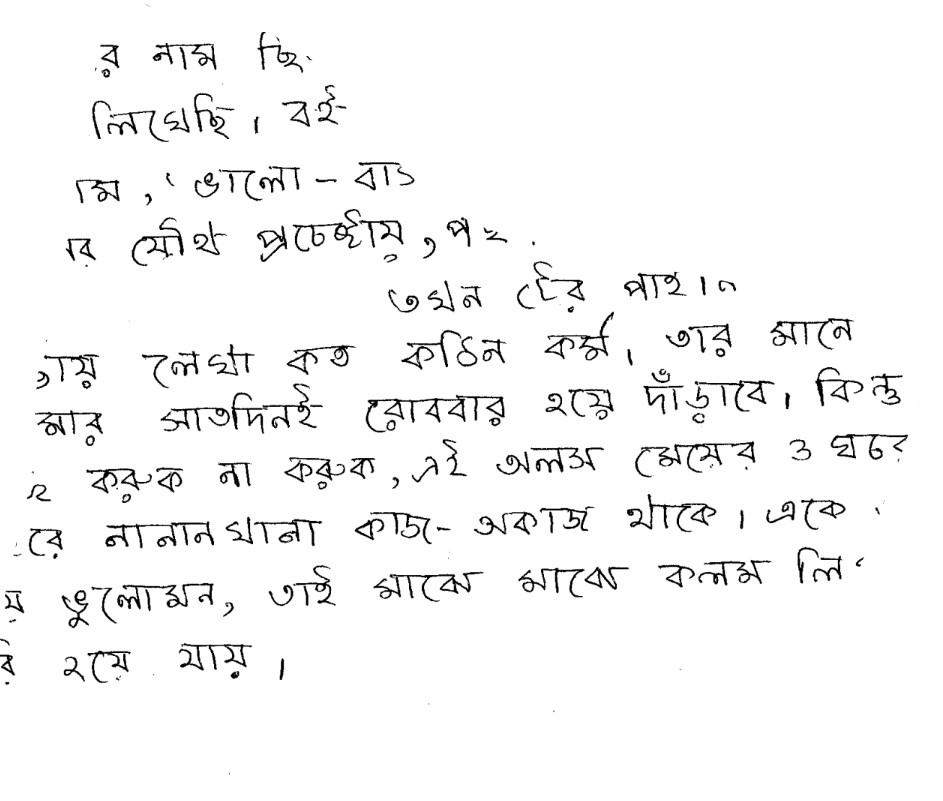 র নাম ছি
লিখেছি। বই
াম, 'ভালো-বা
র যৌথ প্রচেষ্টায়,
তখন টের পাই।
ায় লেখা কত কঠিন কর্ম, তার মানে
মার সাতদিনই রোববার হয়ে দাঁড়াবে। কিন্তু
করুক না করুক, এই অলস মেয়ের ও ঘরে
রে নানানখানা কাজ-অকাজ থাকে। একে
য় ভুলোমন, তাই মাঝে মাঝে কলম
রি হয়ে যায়।